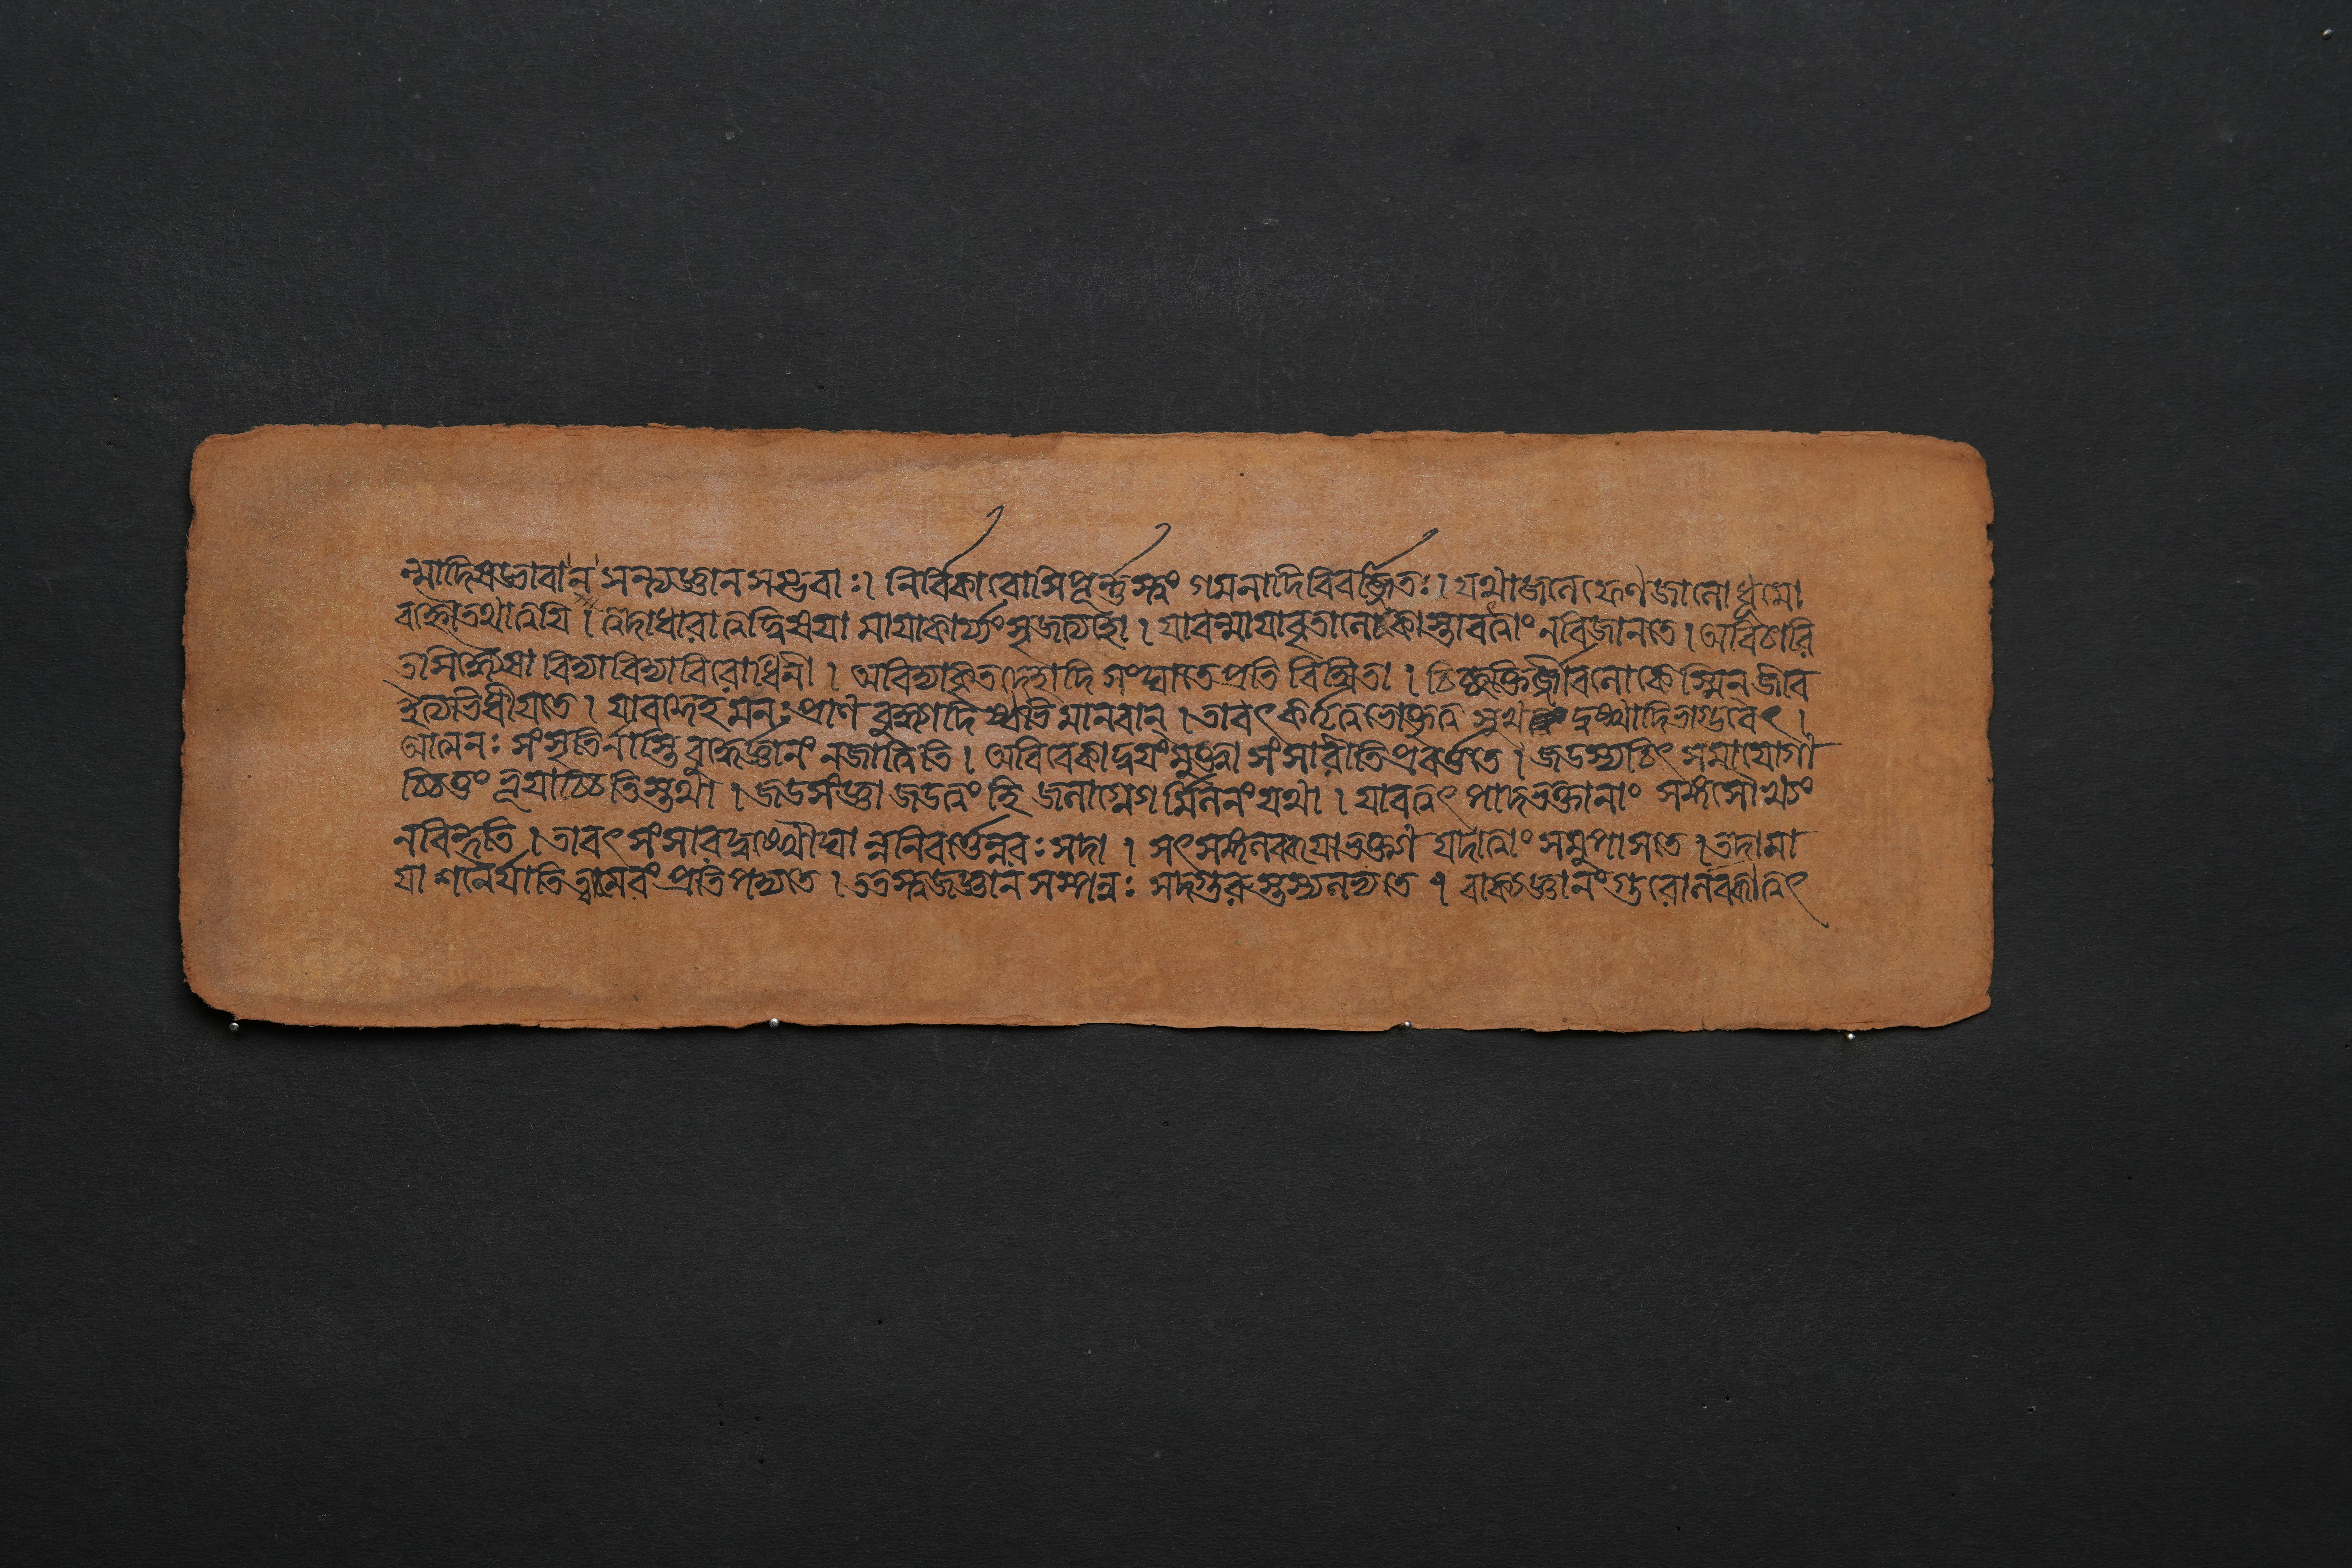 ন্মাদিষড্ভাবা ন সন্ত্যজ্ঞানসম্ভবাঃ। নির্বিকারোসি পূর্ন্নস্ত্বং গমনাদিবিবর্জ্জিতঃ। যথাজলে ফেণজালো ধূমো
বহ্নৌ তথা ত্বয়ি। ত্বদাধারা ত্বদ্বিষয়া মায়াকার্য্যং সৃজত্যহো। যাবন্মায়াবৃতা লোকাস্তাবত্ত্বাং নবিজানতে। অবিচারি
তাসিদ্ধ্যেষা বিদ্যাবিদ্যাবিরোধিনী। অবিদ্যাকৃতদেহাদি সংঘাতে প্রতিবিম্বিতা। চিচ্ছক্তির্জ্জীবলোকেস্মিন জীব
ইত্যভিধীয়তে। যাবদ্দেহমনঃপ্রাণবুদ্ধ্যাদিষ্বভিমানবান্। তাবৎ কর্তৃত্বভোক্তৃত্ব সুখ দুঃখাদিভাগ্ভবেৎ।
আত্মনঃ সংসৃতির্নাস্তি বুদ্ধের্জ্ঞানং নজাত্বিতি। অবিবেকাদ্দ্বয়ংযুঙ্ক্ত্বা সংসারীতি প্রবর্ত্ততে। জডস্যচিৎ সমাযোগা
চ্চিত্তং ভূয়াচ্চিতিস্তথা। জডসংজ্ঞা জডত্বং হি জলাগ্নেগর্মিলনং যথা। যাবত্ত্বৎ পাদভক্তানাং সঙ্গসৌখ্যং
নবিন্দতি। তাবৎ সংসারদুঃখৌঘা ন্ননিবর্ত্তেন্নরঃ সদা। সৎসঙ্গলব্ধয়াভক্ত্যা যদাত্বাং সমুপাসতে। তদামা
য়া শনৈর্যাতি তানবং প্রতিপদ্যতে। ততস্ত্বজ্জ্ঞানসম্পন্নঃ সদ্গুরুস্তস্যলভ্যতে। বাক্যজ্ঞানং গুরোর্লব্ধ্বাত্বৎ